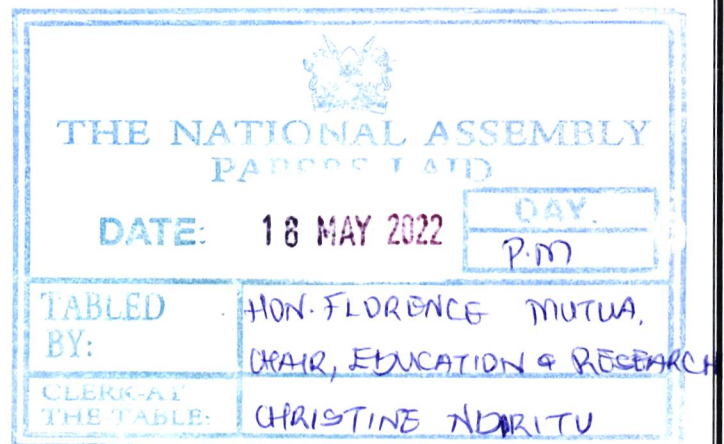 THE NATIONAL ASSEMBLY
PAPERS LAID
DATE: 18 MAY 2022
DAY.
P.M
TABLED
BY:
HON. FLORENCE MUTUA.
CHAIR, EDUCATION & RESEARCH
CLERK-AT
THE TABLE:
CHRISTINE NDIRITU